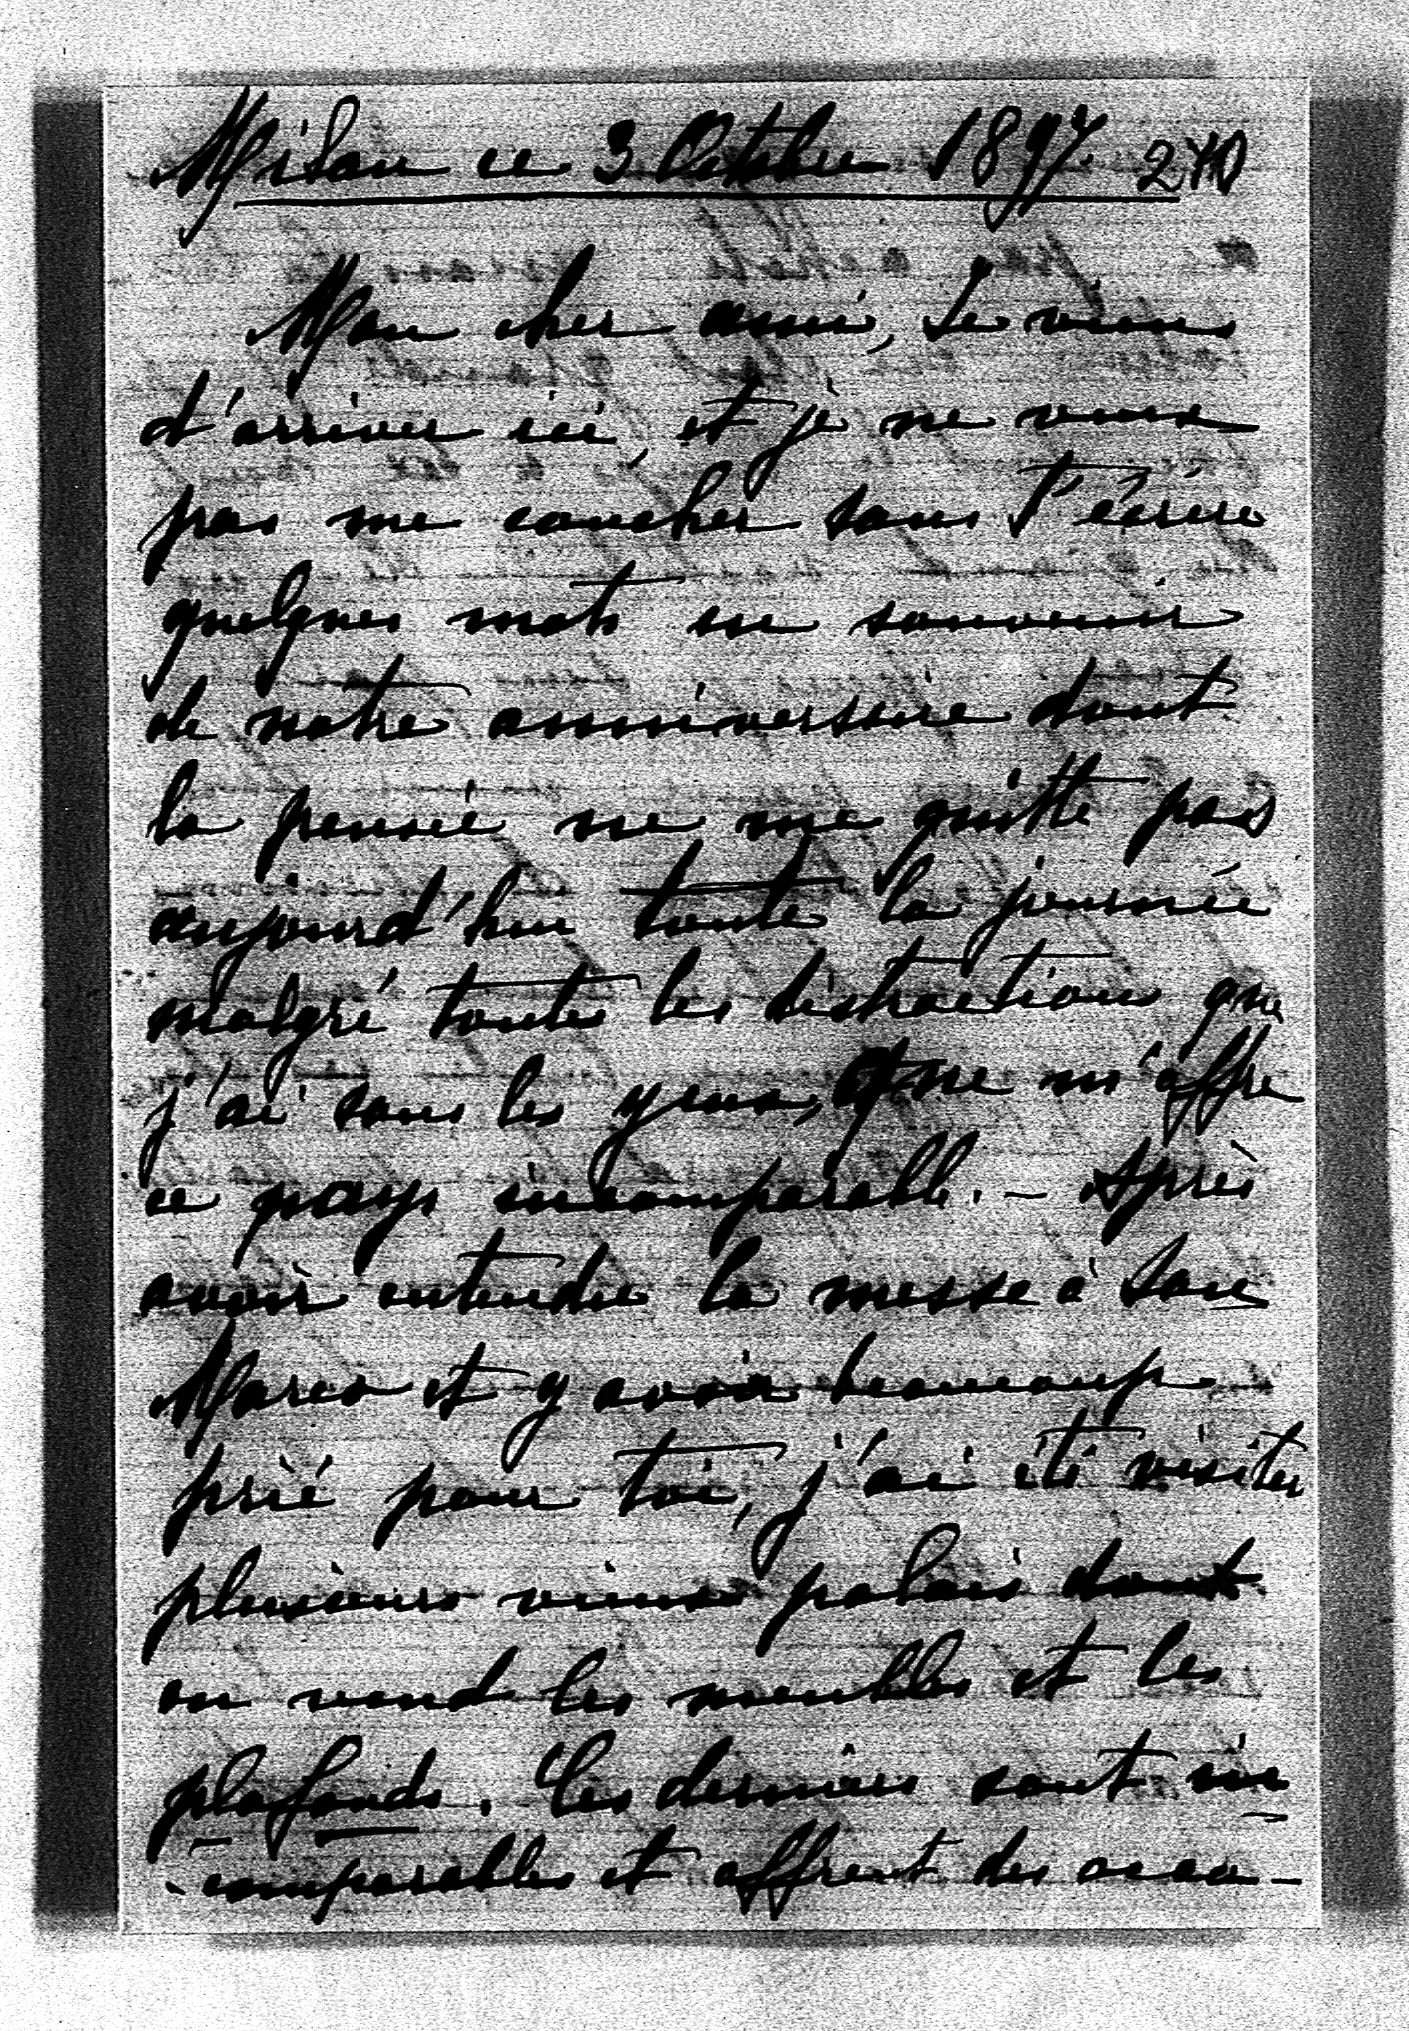 Milan ce 3 Octobre 1897. 240
Mon cher ami, Je viens
d'arriver ici, et je ne veux
pas me coucher sans t'écrire
quelques mots en souvenir
de notre anniversaire dont
la pensée ne me quitte pas
aujourd'hui toute la journée
malgré toutes les distractions que
j'ai sous les yeux, que m'offre
ce pays incomparable. - Après
avoir entendu la messe à San
Marco et y avoir beaucoup
prié pour toi, j'ai été visiter
plusieurs vieux palais dont
on vend les meubles et les
plafonds. Ces derniers sont in
-comparables et offrent des occa-